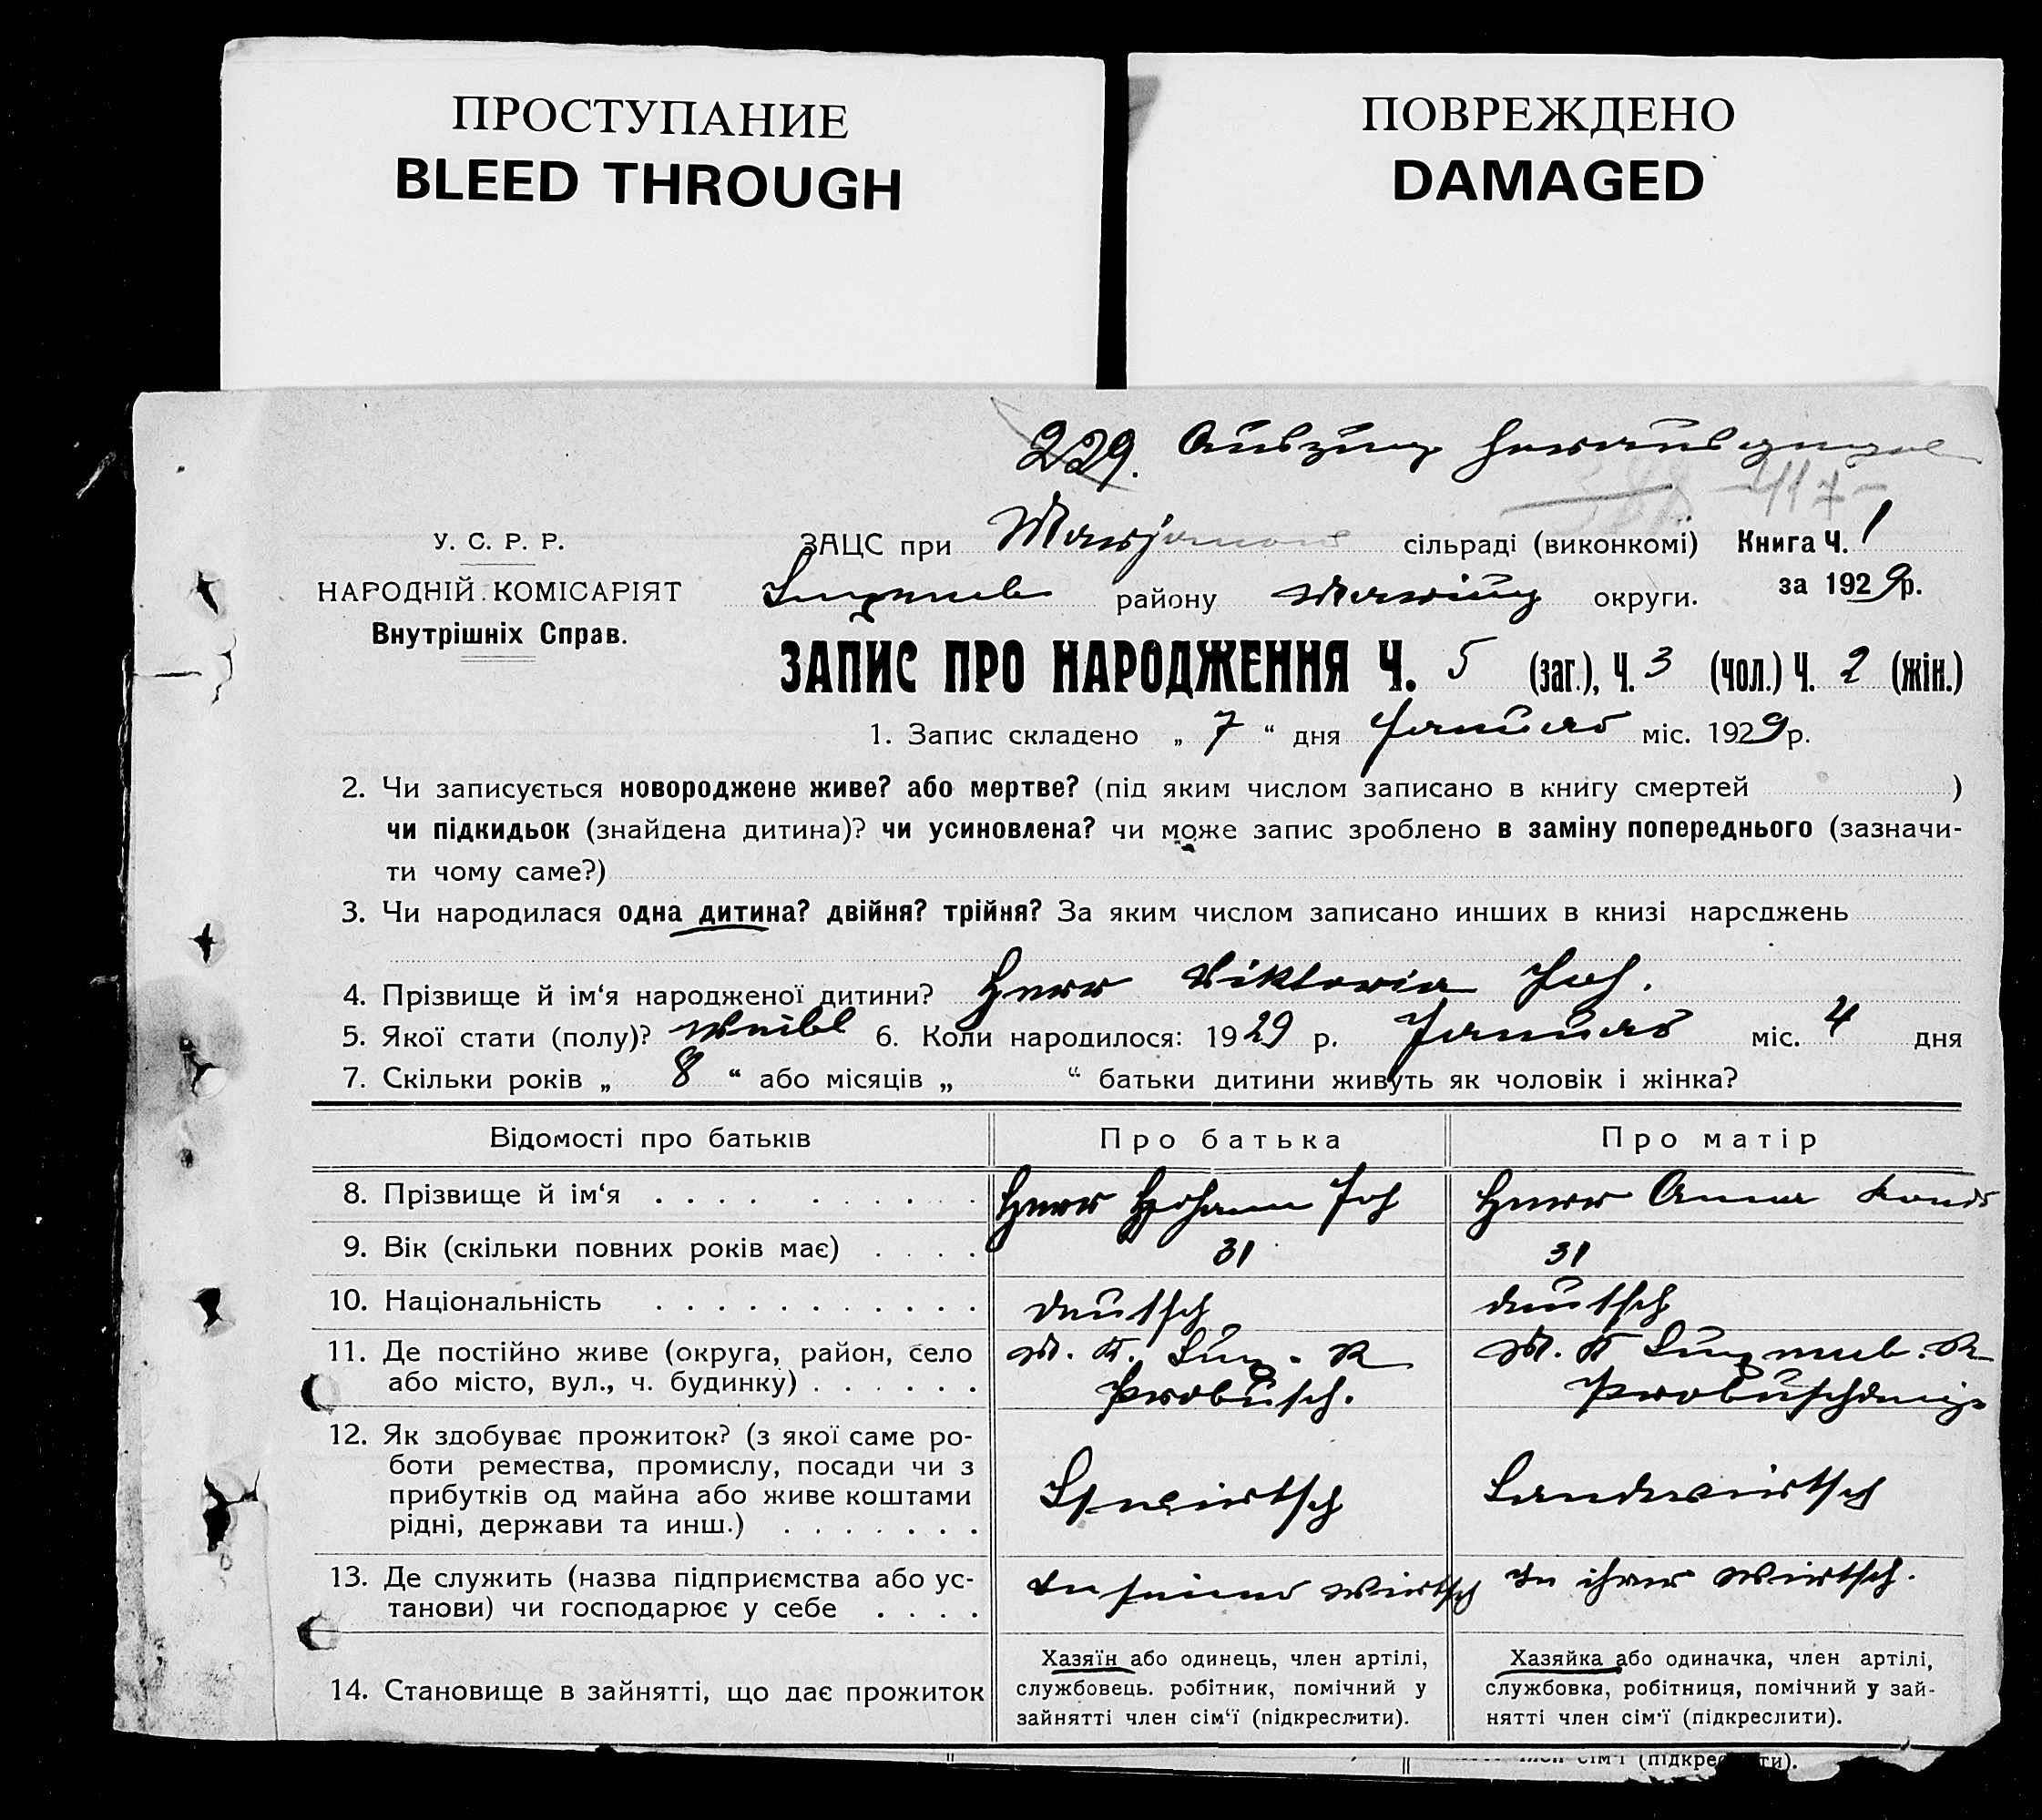 ПРОСТУПАНИЕ
BLEED THROUGH
ПОВРЕЖДЕНО
DAMAGED
229. Auszug
388 -417-
У. С. Р. Р.
НАРОДНІЙ КОМІСАРІЯТ
Внутрішніх Справ.
ЗАЦС при Marjanow сільраді (виконкомі) Книга Ч. 1
району округи. за 1929р.
ЗАПИС ПРО НАРОДЖЕННЯ Ч. 5 (заг.), Ч. 3 (чол.) Ч. 2 (жін.)
1. Запис складено „ 7 “ дня Januar міс. 1929р.
2. Чи записується новороджене живе? або мертве? (під яким числом записано в книгу смертей )
чи підкидьок (знайдена дитина)? чи усиновлена? чи може запис зроблено в заміну попереднього (зазначи-
ти чому саме?)
3. Чи народилася одна дитина? двійня? трійня? За яким числом записано инших в книзі народжень
4. Прізвище й ім‘я народженої дитини? Herr Viktoria Joh.
5. Якої стати (полу)? Weibl 6. Коли народилося: 1929 р. Januar міс. 4 дня
7. Скільки років „ 8 “ або місяців „ “ батьки дитини живуть як чоловік і жінка?
Відомості про батьків Про батька Про матір
8. Прізвище й ім‘я Herr Johann Joh Herr Anna
9. Вік (скільки повних років має) 31 31
10. Національність deutsch deutsch
11. Де постійно живе (округа, район, село M. K. R M. K R
або місто, вул., ч. будинку)
12. Як здобуває прожиток? (з якої саме ро-
боти ремества, промислу, посади чи з
прибутків од майна або живе коштами Ldwirtsch Landwirtsch
рідні, держави та инш.)
13. Де служить (назва підприємства або ус- In seiner Wirtsch In ihrer Wirtsch.
танови) чи господарює у себе
14. Становище в зайнятті, що дає прожиток
Хазяїн або одинець, член артілі,
службовець. робітник, помічний у
зайнятті член сім‘ї (підкреслити).
Хазяйка або одиначка, член артілі,
службовка, робітниця, помічний у зай-
нятті член сім‘ї (підкреслити).